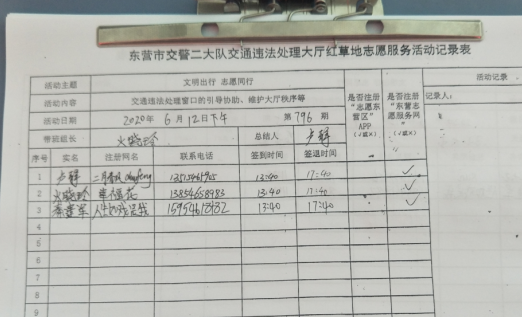 东营市交警二大队交通违法处理大厅红草地志愿服务活动记录表
活动主题 文明出行 志愿同行
活动内容 交通违法处理窗口的引导协助、维护大厅秩序等
活动日期 2020年6月12日下午 第796期
带班组长 总结人
是否注册“志愿东营区”APP（√或×）
是否注册“东营志愿服务网”（√或×）
活动记录
记录人：
序号 实名 注册网名 联系电话 签到时间 签退时间
1 13:40 17:40 ✓
2 13854658983 13:40 17:40 ✓
3 13:40 17:40 ✓
4
5
6
7
8
9